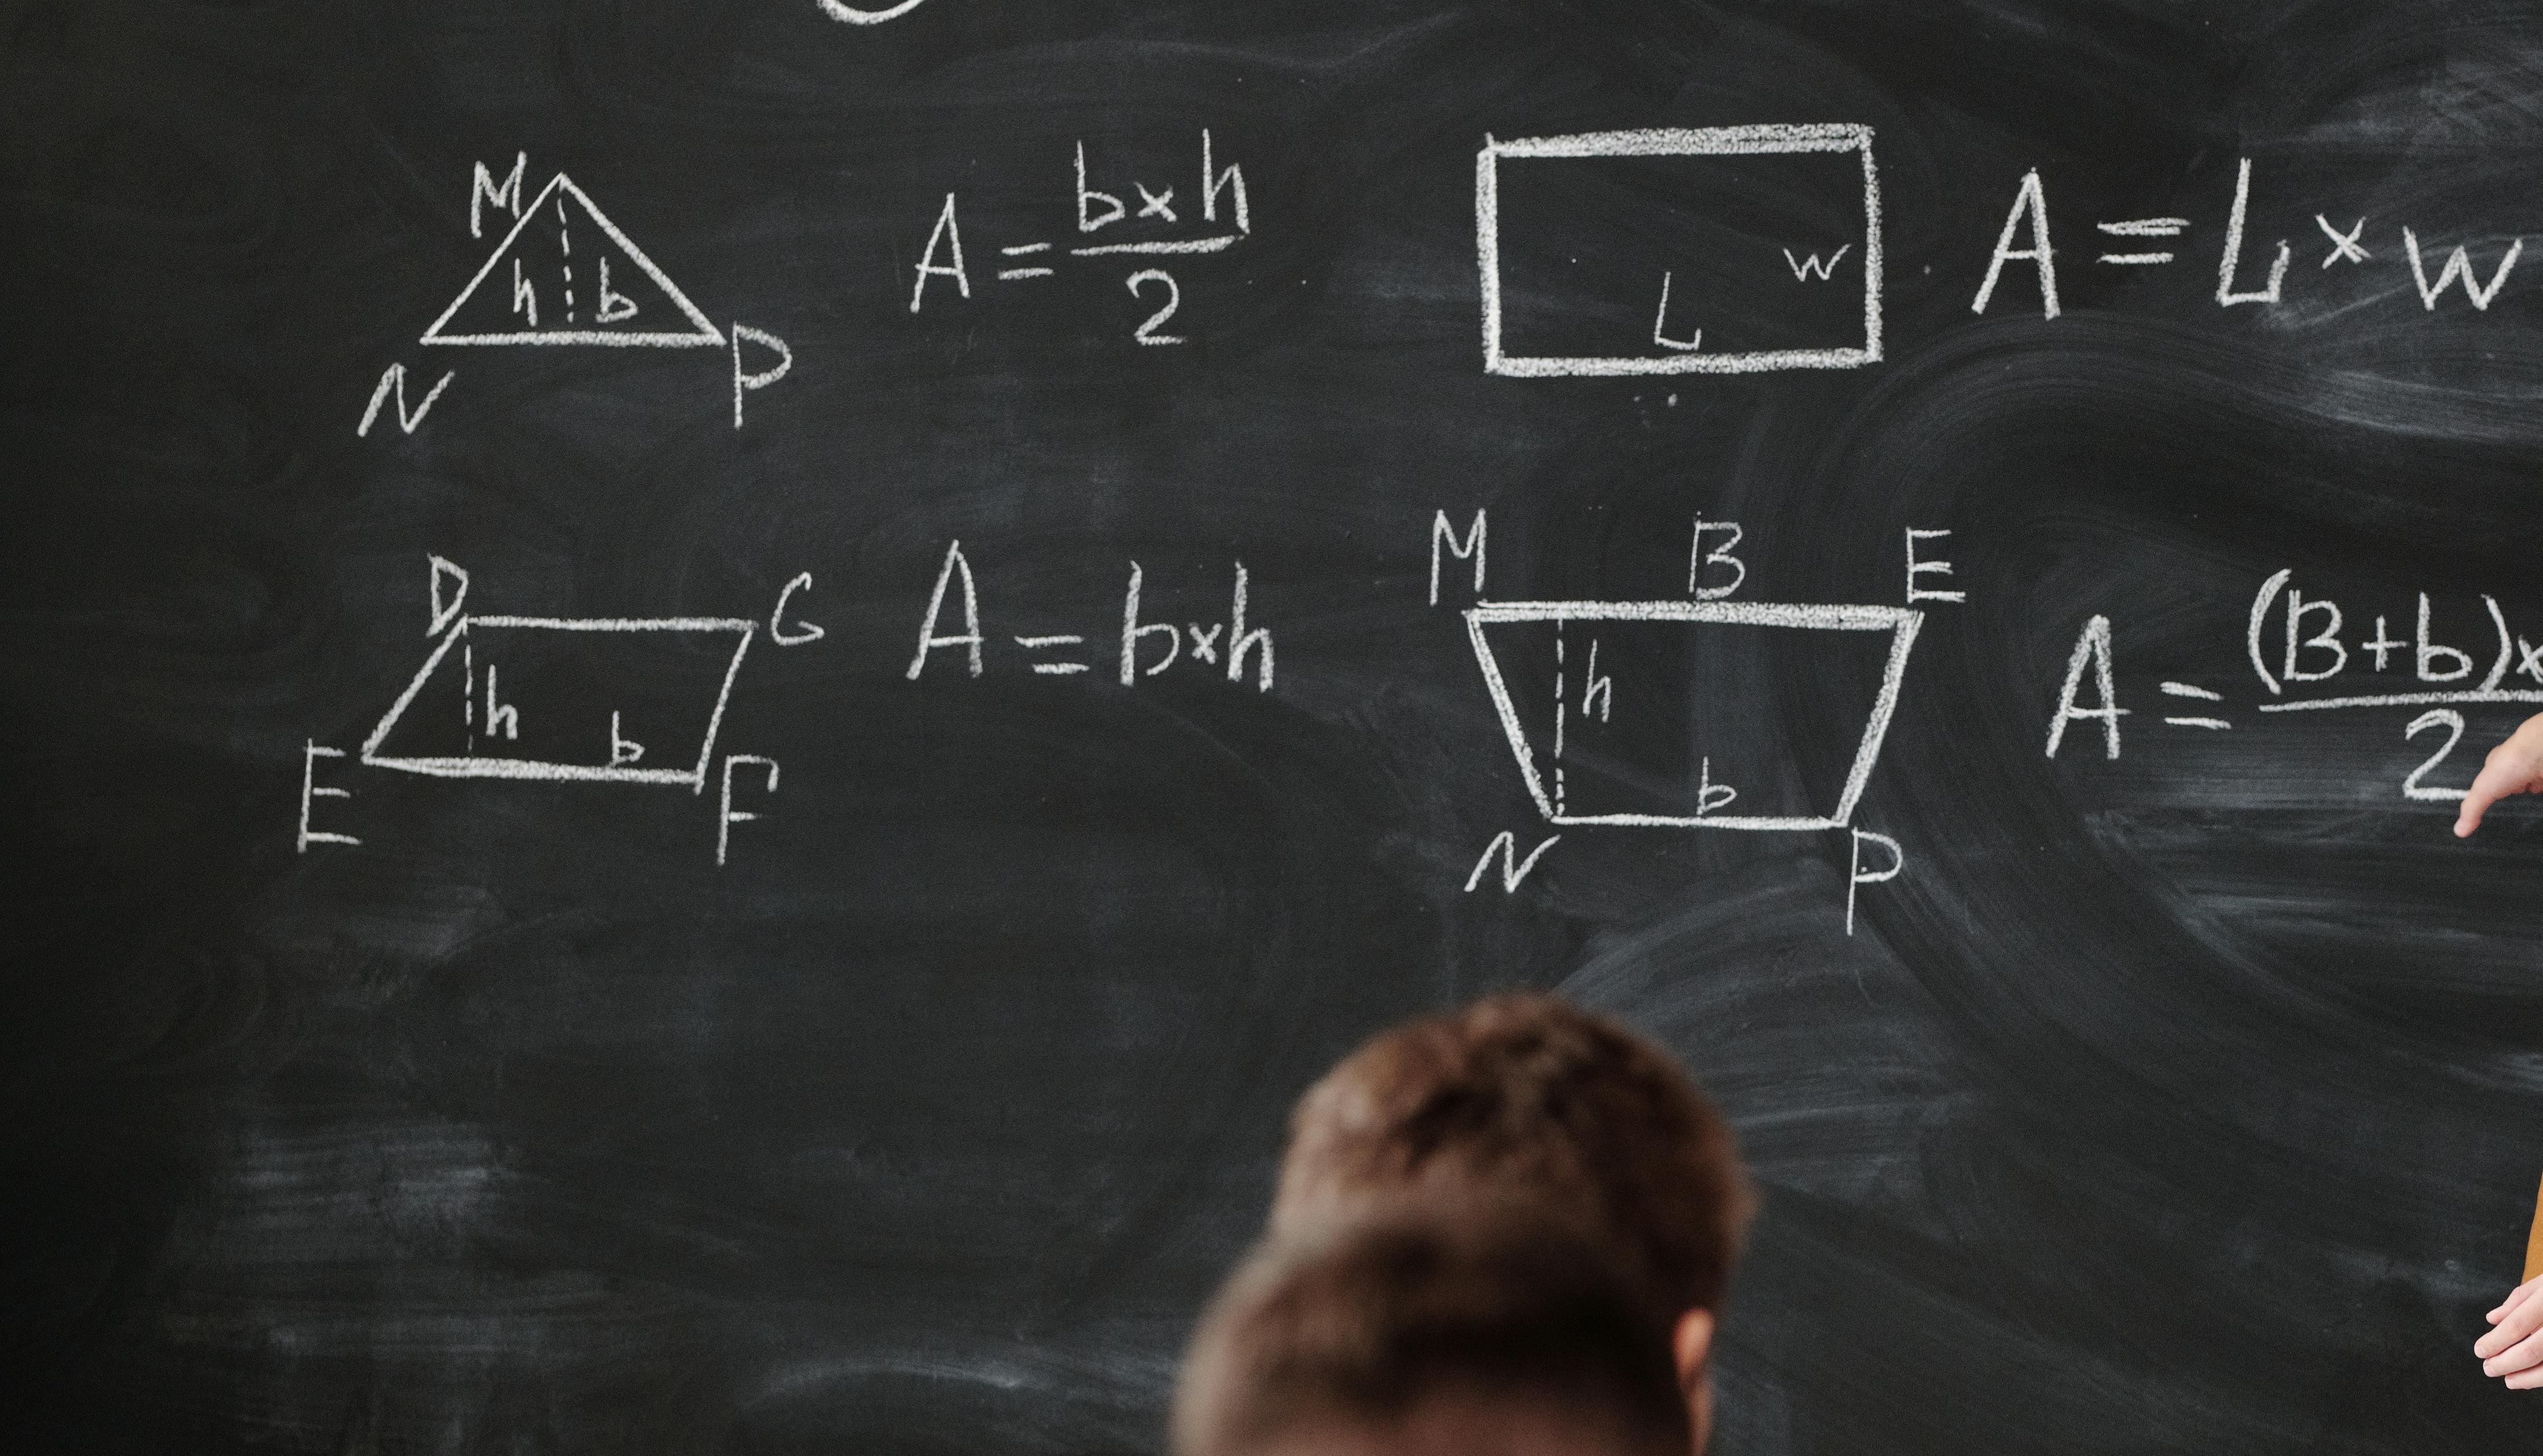 M
h b
N P
A = b×h/2
L W
A = L × W
D G
h b
E F
A = b×h
M B E
h
b
N P
A = (B+b)×/2